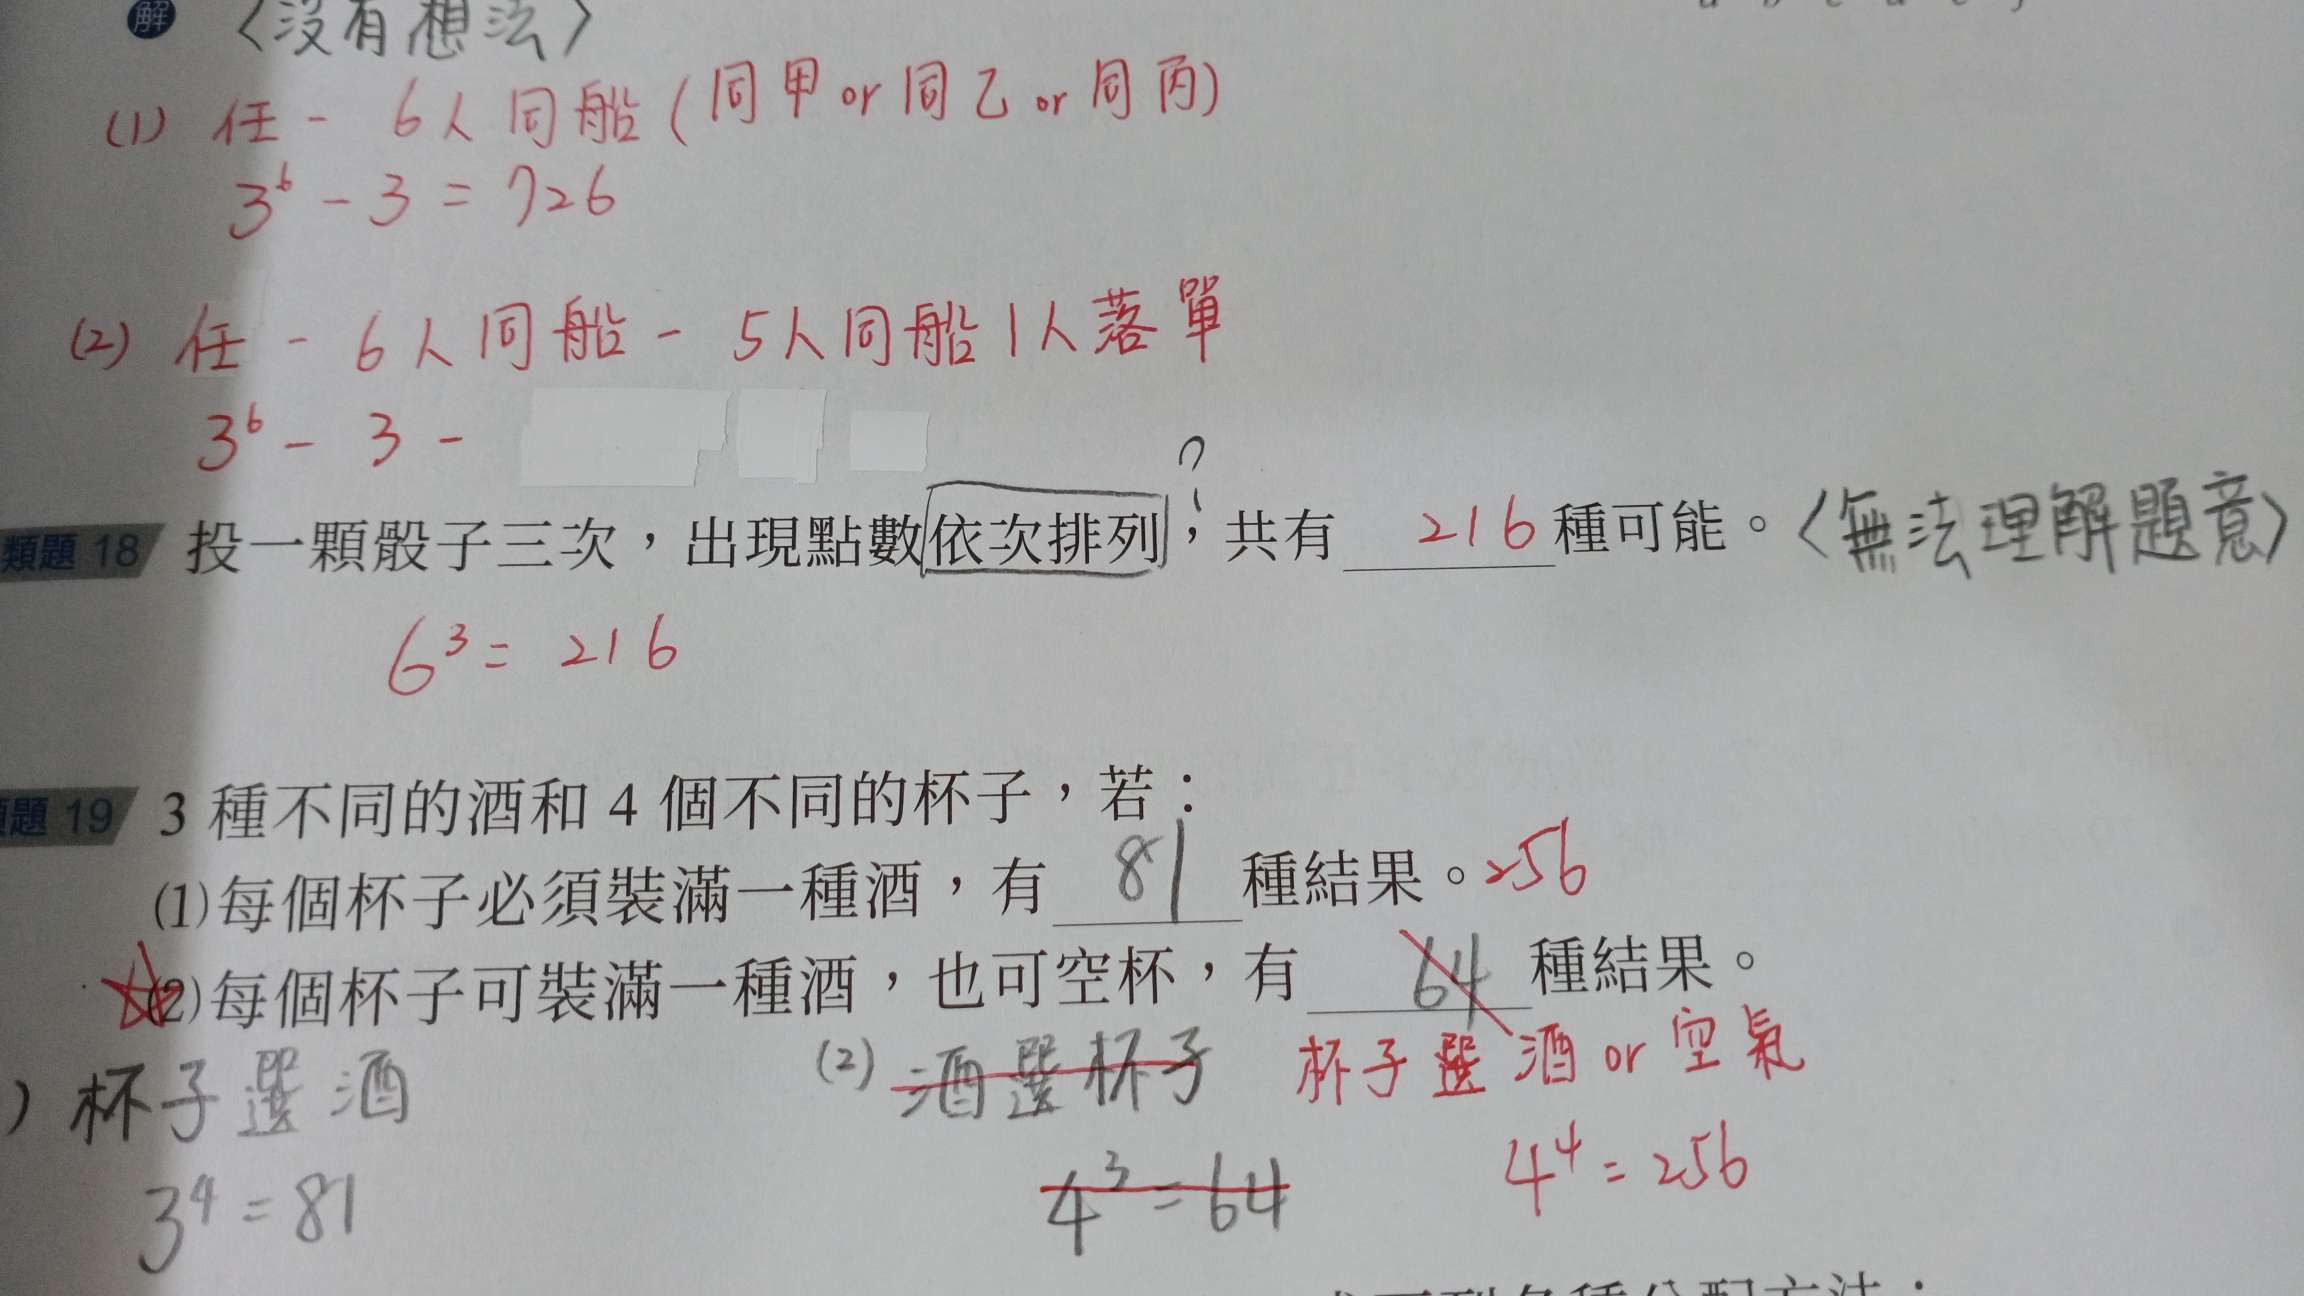 解 〈沒有想法〉
(1) 任 - 6人同船(同甲or同乙or同丙)
3⁶ - 3 = 726
(2) 任 - 6人同船 - 5人同船1人落單
3⁶ - 3 -
?
類題 18 投一顆骰子三次，出現點數依次排列，共有 216 種可能。〈無法理解題意〉
6³ = 216
題 19 3 種不同的酒和 4 個不同的杯子，若：
⑴每個杯子必須裝滿一種酒，有 81 種結果。256
⑵每個杯子可裝滿一種酒，也可空杯，有 64 種結果。
) 杯子選酒 (2) 酒選杯子 杯子選酒or空氣
3⁴ = 81 4³ = 64 4⁴ = 256